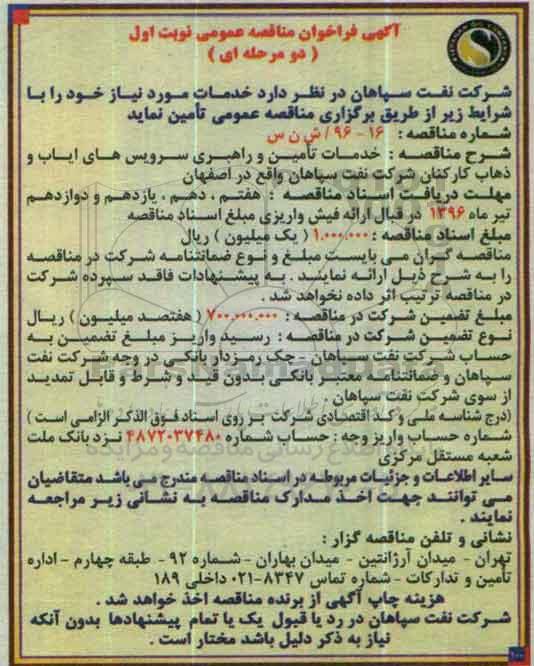 آگهی فراخوان مناقصه عمومی نوبت اول
( دو مرحله ای )
شرکت نفت سپاهان در نظر دارد خدمات مورد نیاز خود را با
شرایط زیر از طریق برگزاری مناقصه عمومی تأمین نماید
شماره مناقصه : ۱۶ - ۹۶ / ش ن س
شرح مناقصه : خدمات تأمین و راهبری سرویس های ایاب و
ذهاب کارکنان شرکت نفت سپاهان واقع در اصفهان
مهلت دریافت اسناد مناقصه : هفتم ، دهم ، یازدهم و دوازدهم
تیر ماه ۱۳۹۶ در قبال ارائه فیش واریزی مبلغ اسناد مناقصه
مبلغ اسناد مناقصه : ۱.۰۰۰.۰۰۰ ( یک میلیون ) ریال
مناقصه گران می بایست مبلغ و نوع ضمانتنامه شرکت در مناقصه
را به شرح ذیل ارائه نمایند . به پیشنهادات فاقد سپرده شرکت
در مناقصه ترتیب اثر داده نخواهد شد .
مبلغ تضمین شرکت در مناقصه : ۷۰۰.۰۰۰.۰۰۰ ( هفتصد میلیون ) ریال
نوع تضمین شرکت در مناقصه : رسید واریز مبلغ تضمین به
حساب شرکت نفت سپاهان - چک رمزدار بانکی در وجه شرکت نفت
سپاهان و ضمانتنامه معتبر بانکی بدون قید و شرط و قابل تمدید
از سوی شرکت نفت سپاهان
(درج شناسه ملی و کد اقتصادی شرکت بر روی اسناد فوق الذکر الزامی است )
شماره حساب واریز وجه : حساب شماره ۴۸۷۲۰۳۷۴۸۰ نزد بانک ملت
شعبه مستقل مرکزی
سایر اطلاعات و جزئیات مربوطه در اسناد مناقصه مندرج می باشد متقاضیان
می توانند جهت اخذ مدارک مناقصه به نشانی زیر مراجعه
نمایند .
نشانی و تلفن مناقصه گزار :
تهران - میدان آرژانتین - میدان بهاران - شماره ۹۲ - طبقه چهارم - اداره
تأمین و تدارکات - شماره تماس ۸۳۴۷-۰۲۱ داخلی ۱۸۹
هزینه چاپ آگهی از برنده مناقصه اخذ خواهد شد .
شرکت نفت سپاهان در رد یا قبول یک یا تمام پیشنهادها بدون آنکه
نیاز به ذکر دلیل باشد مختار است .